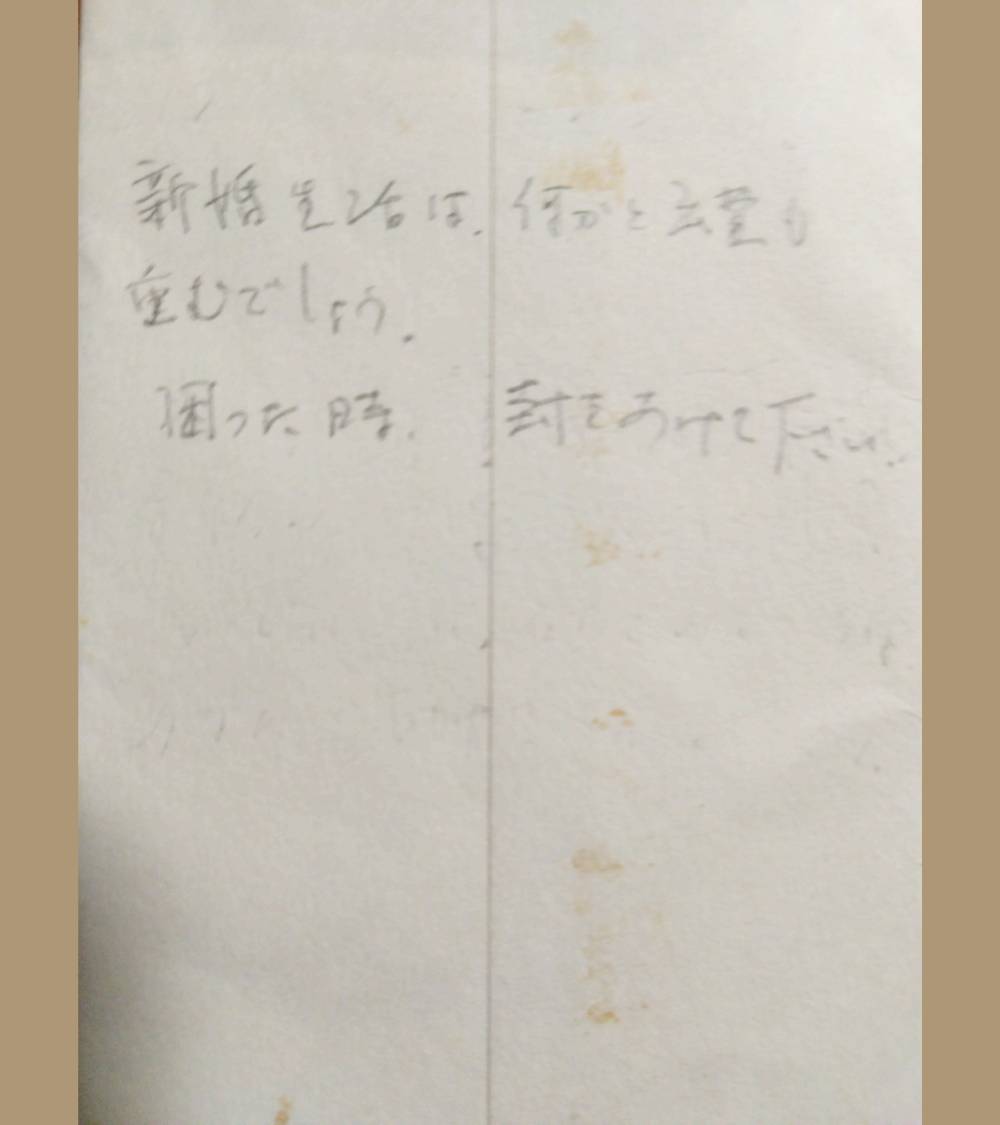 新婚生活は、何かと
むでしょう。
困った時、封をあけて下さい。